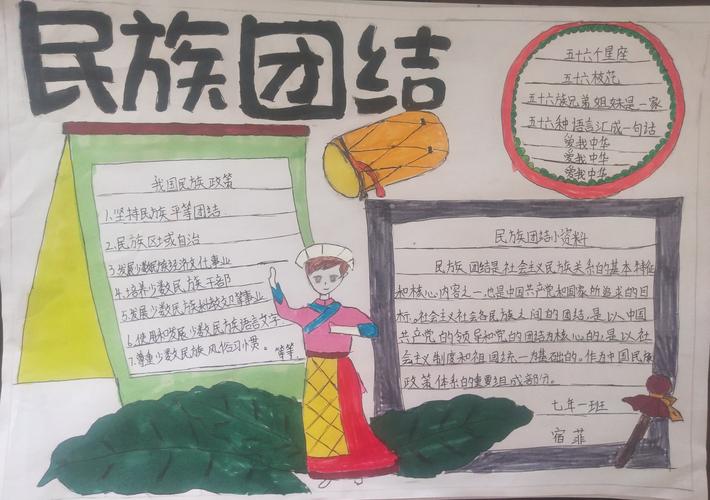 民族团结
我国民族政策
1.坚持民族平等团结
2.民族区域自治
3.发展少数民族经济文化事业
4.培养少数民族干部
5.发展少数民族科教卫等事业
6.使用和发展少数民族语言文字
7.尊重少数民族风俗习惯。等等
五十六个星座
五十六枝花
五十六族兄弟姐妹是一家
五十六种语言汇成一句话
爱我中华
爱我中华
爱我中华
民族团结小资料
民族团结是社会主义民族关系的基本特征
和核心内容之一,也是中国共产党和国家所追求的目
标。社会主义社会各民族之间的团结,是以中国
共产党的领导和党的团结为核心的,是以社
会主义制度和祖国统一为基础的。作为中国民族
政策体系的重要组成部分。
七年一班
宿菲